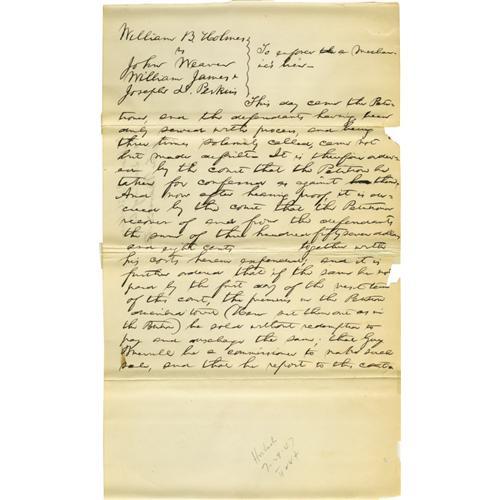 William B. Holmes
vs
John Weaver
William James &
Joseph D. Perkins
To enforce a Mechan-
ic's lien—
This day came the Peti-
tioner, and the defendants having been
duly served with process, and being
three times solemnly called, came not
but made default. It is therefore order-
ed by the court that the Petition be
taken for confessed as against them.
And now after hearing proof it is or-
dered by the court that the Petitioner
recover of and from the defendants
the sum of three hundred fifty seven dollars
and eight cents together with
his costs herein expended, and it is
further ordered that if the same be not
paid by the first day of the next term
of this court, the premises in the Petition
described to wit (Here set them out as in
the Petition) be sold without redemption to
pay and discharge the same; that Guy
Merrill be a commissioner to make such
sale, and that he report to this court